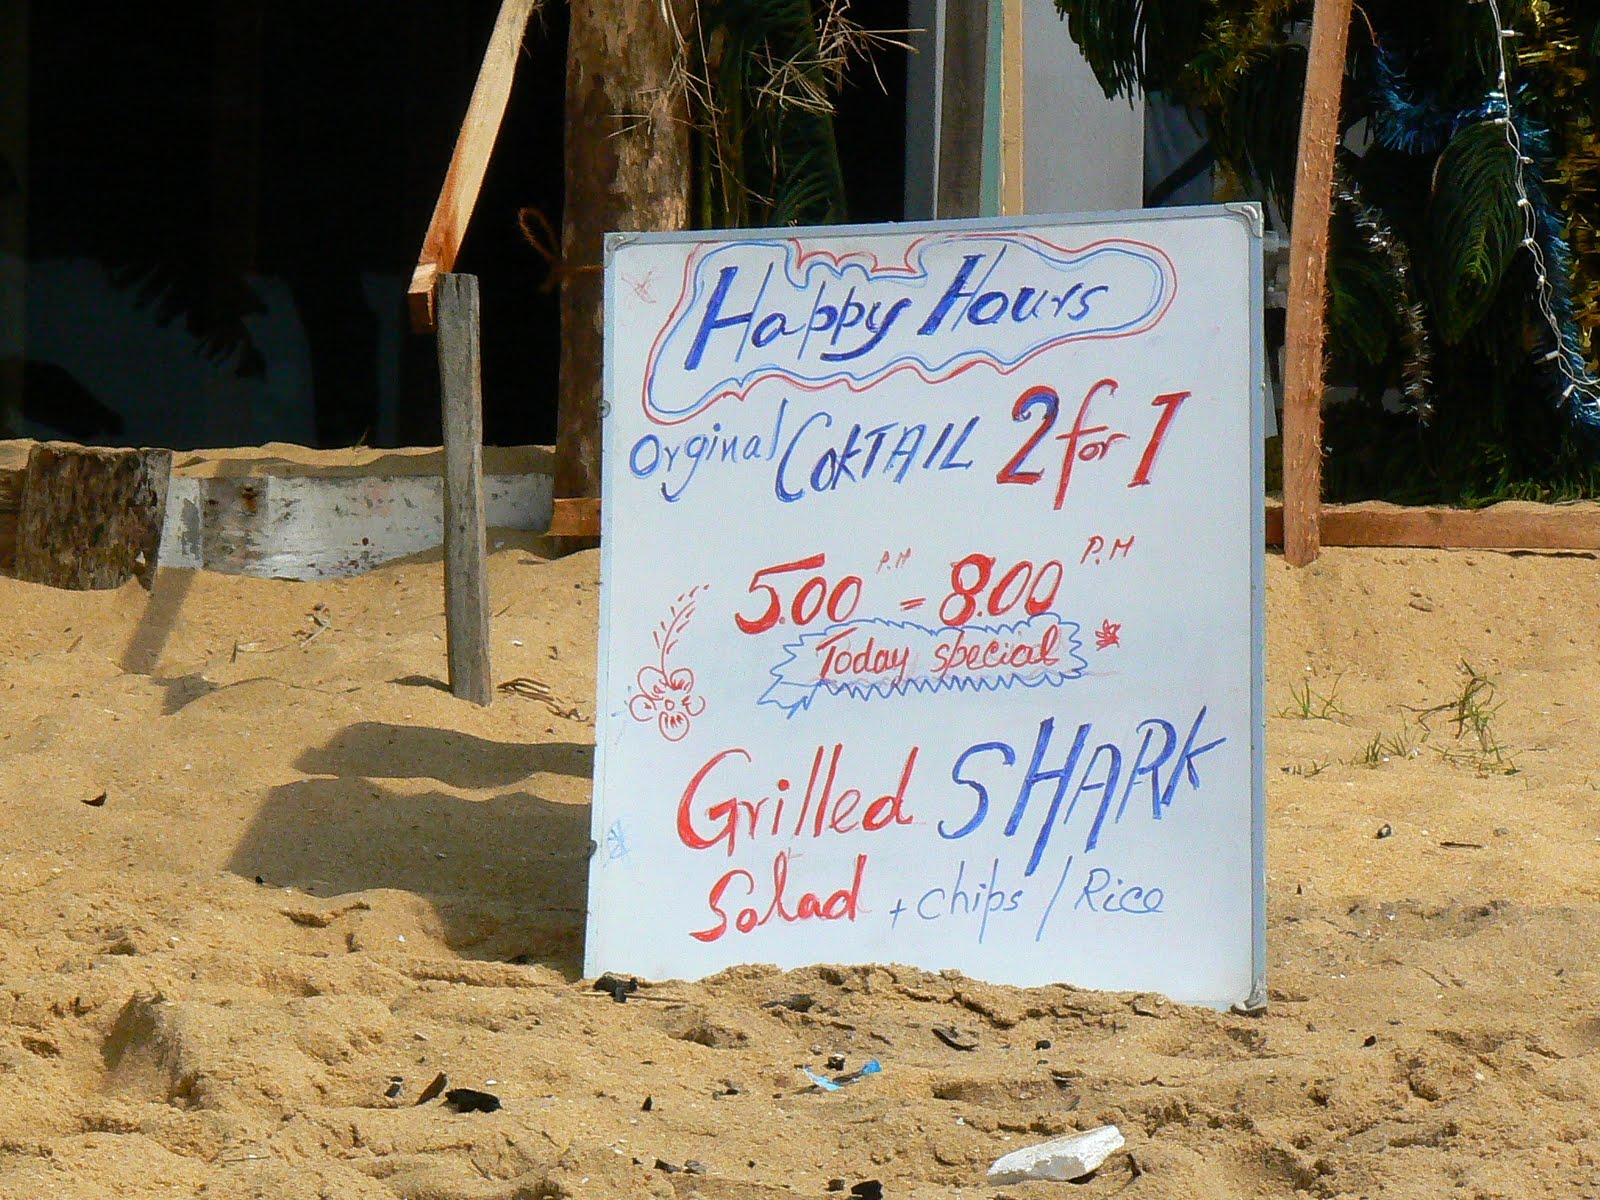 Happy Hours
Orginal CokTAIL 2 for 1
5.00 P.M = 8.00 P.M
Today special
Grilled SHARK
Salad + chips / Rice